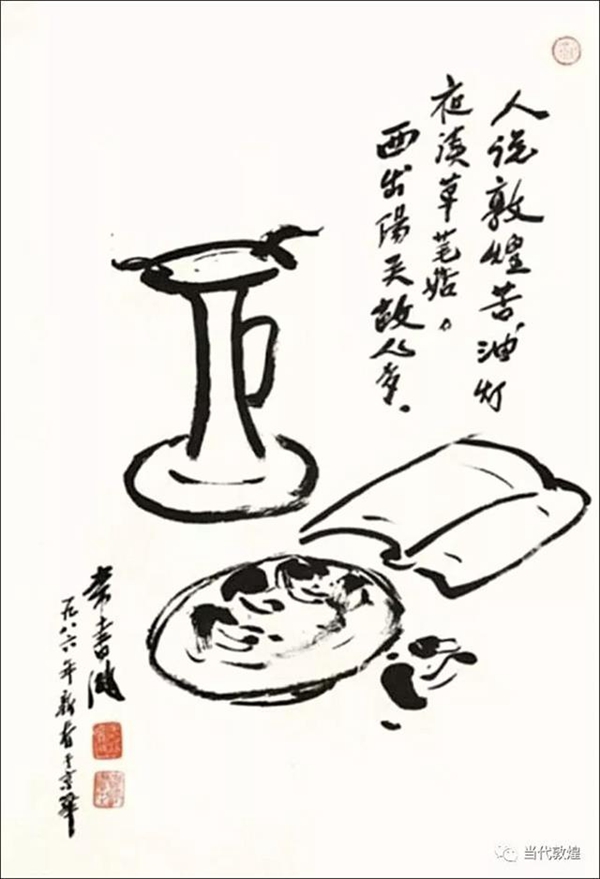 人说敦煌苦,油灯
夜读草芼姑。
西出陽关故人多。
常書鴻
一九八六年新春于京華
当代敦煌